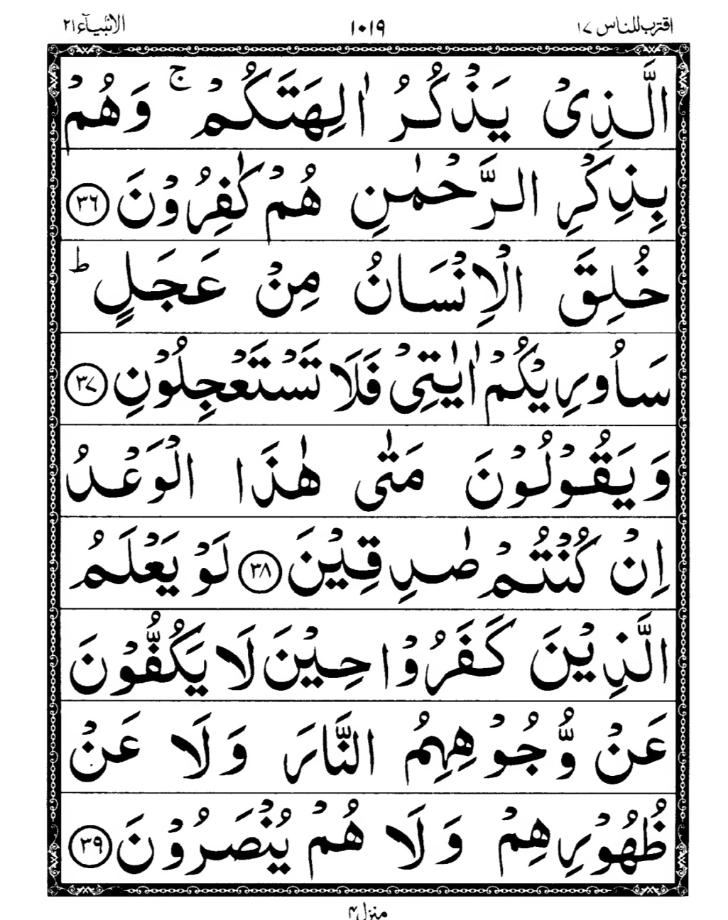 اقترب للناس ١٧ ١٠١٩ الانبيآء ٢١
الَّذِیْ یَذْكُرُ اٰلِهَتَكُمْ ۚ وَهُمْ
بِذِكْرِ الرَّحْمٰنِ هُمْ كٰفِرُوْنَ ﴿۳۶﴾
خُلِقَ الْاِنْسَانُ مِنْ عَجَلٍ ؕ
سَاُورِیْكُمْ اٰیٰتِیْ فَلَا تَسْتَعْجِلُوْنِ ﴿۳۷﴾
وَیَقُوْلُوْنَ مَتٰی هٰذَا الْوَعْدُ
اِنْ كُنْتُمْ صٰدِقِیْنَ ﴿۳۸﴾ لَوْ یَعْلَمُ
الَّذِیْنَ كَفَرُوْا حِیْنَ لَا یَكُفُّوْنَ
عَنْ وُّجُوْهِهِمُ النَّارَ وَلَا عَنْ
ظُهُوْرِهِمْ وَلَا هُمْ یُنْصَرُوْنَ ﴿۳۹﴾
منزل ۴